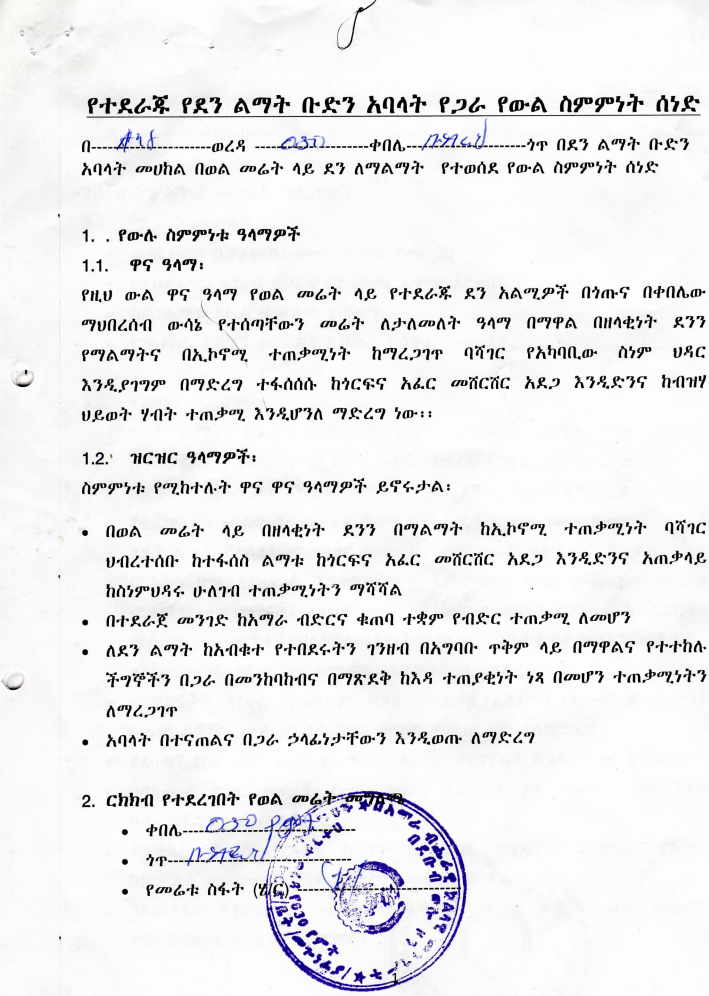 የተደራጁ የደን ልማት ቡድን አባላት የጋራ የውል ስምምነት ሰነድ
በ--------------------ወረዳ --------------------ቀበሌ--------------------ጎጥ በደን ልማት ቡድን
አባላት መሀከል በወል መሬት ላይ ደን ለማልማት የተወሰደ የውል ስምምነት ሰነድ
1. . የውሉ ስምምነቱ ዓላማዎች
1.1. ዋና ዓላማ፡
የዚህ ውል ዋና ዓላማ የወል መሬት ላይ የተደራጁ ደን አልሚዎች በጎጡና በቀበሌው
ማህበረሰብ ውሳኔ የተሰጣቸውን መሬት ለታለመለት ዓላማ በማዋል በዘላቂነት ደንን
የማልማትና በኢኮኖሚ ተጠቃሚነት ከማረጋገጥ ባሻገር የአካባቢው ስነም ህዳር
እንዲያገግም በማድረግ ተፋሰሰሱ ከጎርፍና አፈር መሸርሸር አደጋ እንዲድንና ከብዝሃ
ህይወት ሃብት ተጠቃሚ እንዲሆንለ ማድረግ ነው፡፡
1.2. ዝርዝር ዓላማዎች፡
ስምምነቱ የሚከተሉት ዋና ዋና ዓላማዎች ይኖሩታል፡
• በወል መሬት ላይ በዘላቂነት ደንን በማልማት ከኢኮኖሚ ተጠቃሚነት ባሻገር
ህብረተሰቡ ከተፋሰስ ልማቱ ከጎርፍና አፈር መሸርሸር አደጋ እንዲድንና አጠቃላይ
ከስነምህዳሩ ሁለገብ ተጠቃሚነትን ማሻሻል
• በተደራጀ መንገድ ከአማራ ብድርና ቁጠባ ተቋም የብድር ተጠቃሚ ለመሆን
• ለደን ልማት ከአብቁተ የተበደሩትን ገንዘብ በአግባቡ ጥቅም ላይ በማዋልና የተተከሉ
ችግኞችን በጋራ በመንከባከብና በማጽደቅ ከእዳ ተጠያቂነት ነጻ በመሆን ተጠቃሚነትን
ለማረጋገጥ
• አባላት በተናጠልና በጋራ ኃላፊነታቸውን እንዲወጡ ለማድረግ
2. ርክክብ የተደረገበት የወል መሬት መግለጫ
• ቀበሌ--------------------
• ጎጥ--------------------
• የመሬቱ ስፋት (ሄ/ር) --------------------
1